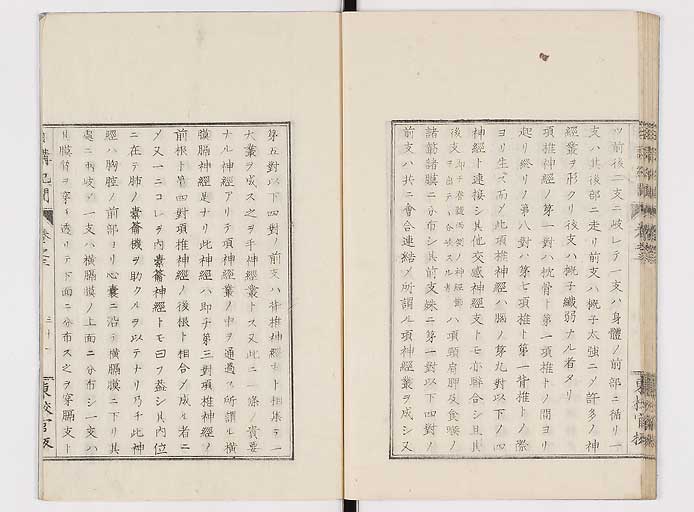 ツ前後二支ニ岐レテ一支ハ身體ノ前部ニ循リ一
支ハ其後部ニ走リ前支ハ概子太強ニノ許多ノ神
經叢ヲ形クリ後支ハ概子纖弱ナル者タリ
項椎神經ノ第一對ハ枕骨ト第一項椎トノ間ヨリ
起リ終リノ第八對ハ第七項椎ト第一背椎トノ際
ヨリ生ズ而ノ此項椎神經ハ腦ノ第九對以下ノ四
神經ト連接シ其他交感神經支トモ亦聯合シ且其
後支 ハ項頸肩胛及食喉ノ
諸部諸膜ニ分布シ其前支殊ニ第一對以下四對ノ
前支ハ共ニ會合連結ノ所謂ル項神經叢ヲ成シ又
第五對以下四對ノ前支ハ背椎神經ト相集テ一
大叢ヲ成ス之ヲ手神經叢トス又此ニ一條ノ貴要
ナル神經アリテ項神經叢ノ中ヲ通過ス所謂ル橫
膈膜神經是ナリ此神經ハ即チ第三對項椎神經ノ
前根ト第四對項椎神經ノ後根ト相合ノ成ル者ニ
ノ又一ニコレヲ內橐籥神經トモ曰フ蓋シ其內位
ニ在テ肺ノ橐籥機ヲ助クルヲ以テナリ乃チ此神
經ハ胸腔ノ前部ヨリ心囊ニ沿テ橫膈膜ニ下リ其
處ニ兩岐ノ一支ハ橫膈膜ノ上面ニ分布シ一支ハ
其膜質ヲ穿チ透リテ下面ニ分布ス之ヲ穿膈支ト
講記聞
卷之三
二十一
東校官版